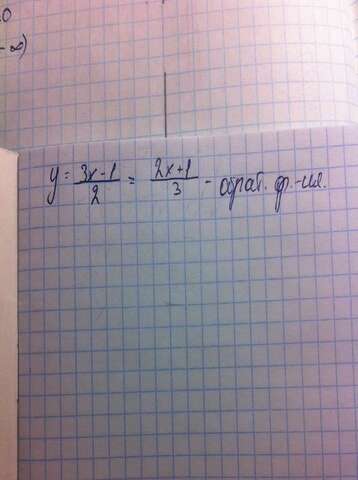 0
-∞)
y = \frac{3x-1}{2} = \frac{2x+1}{3} - обрат. ф.-ия.